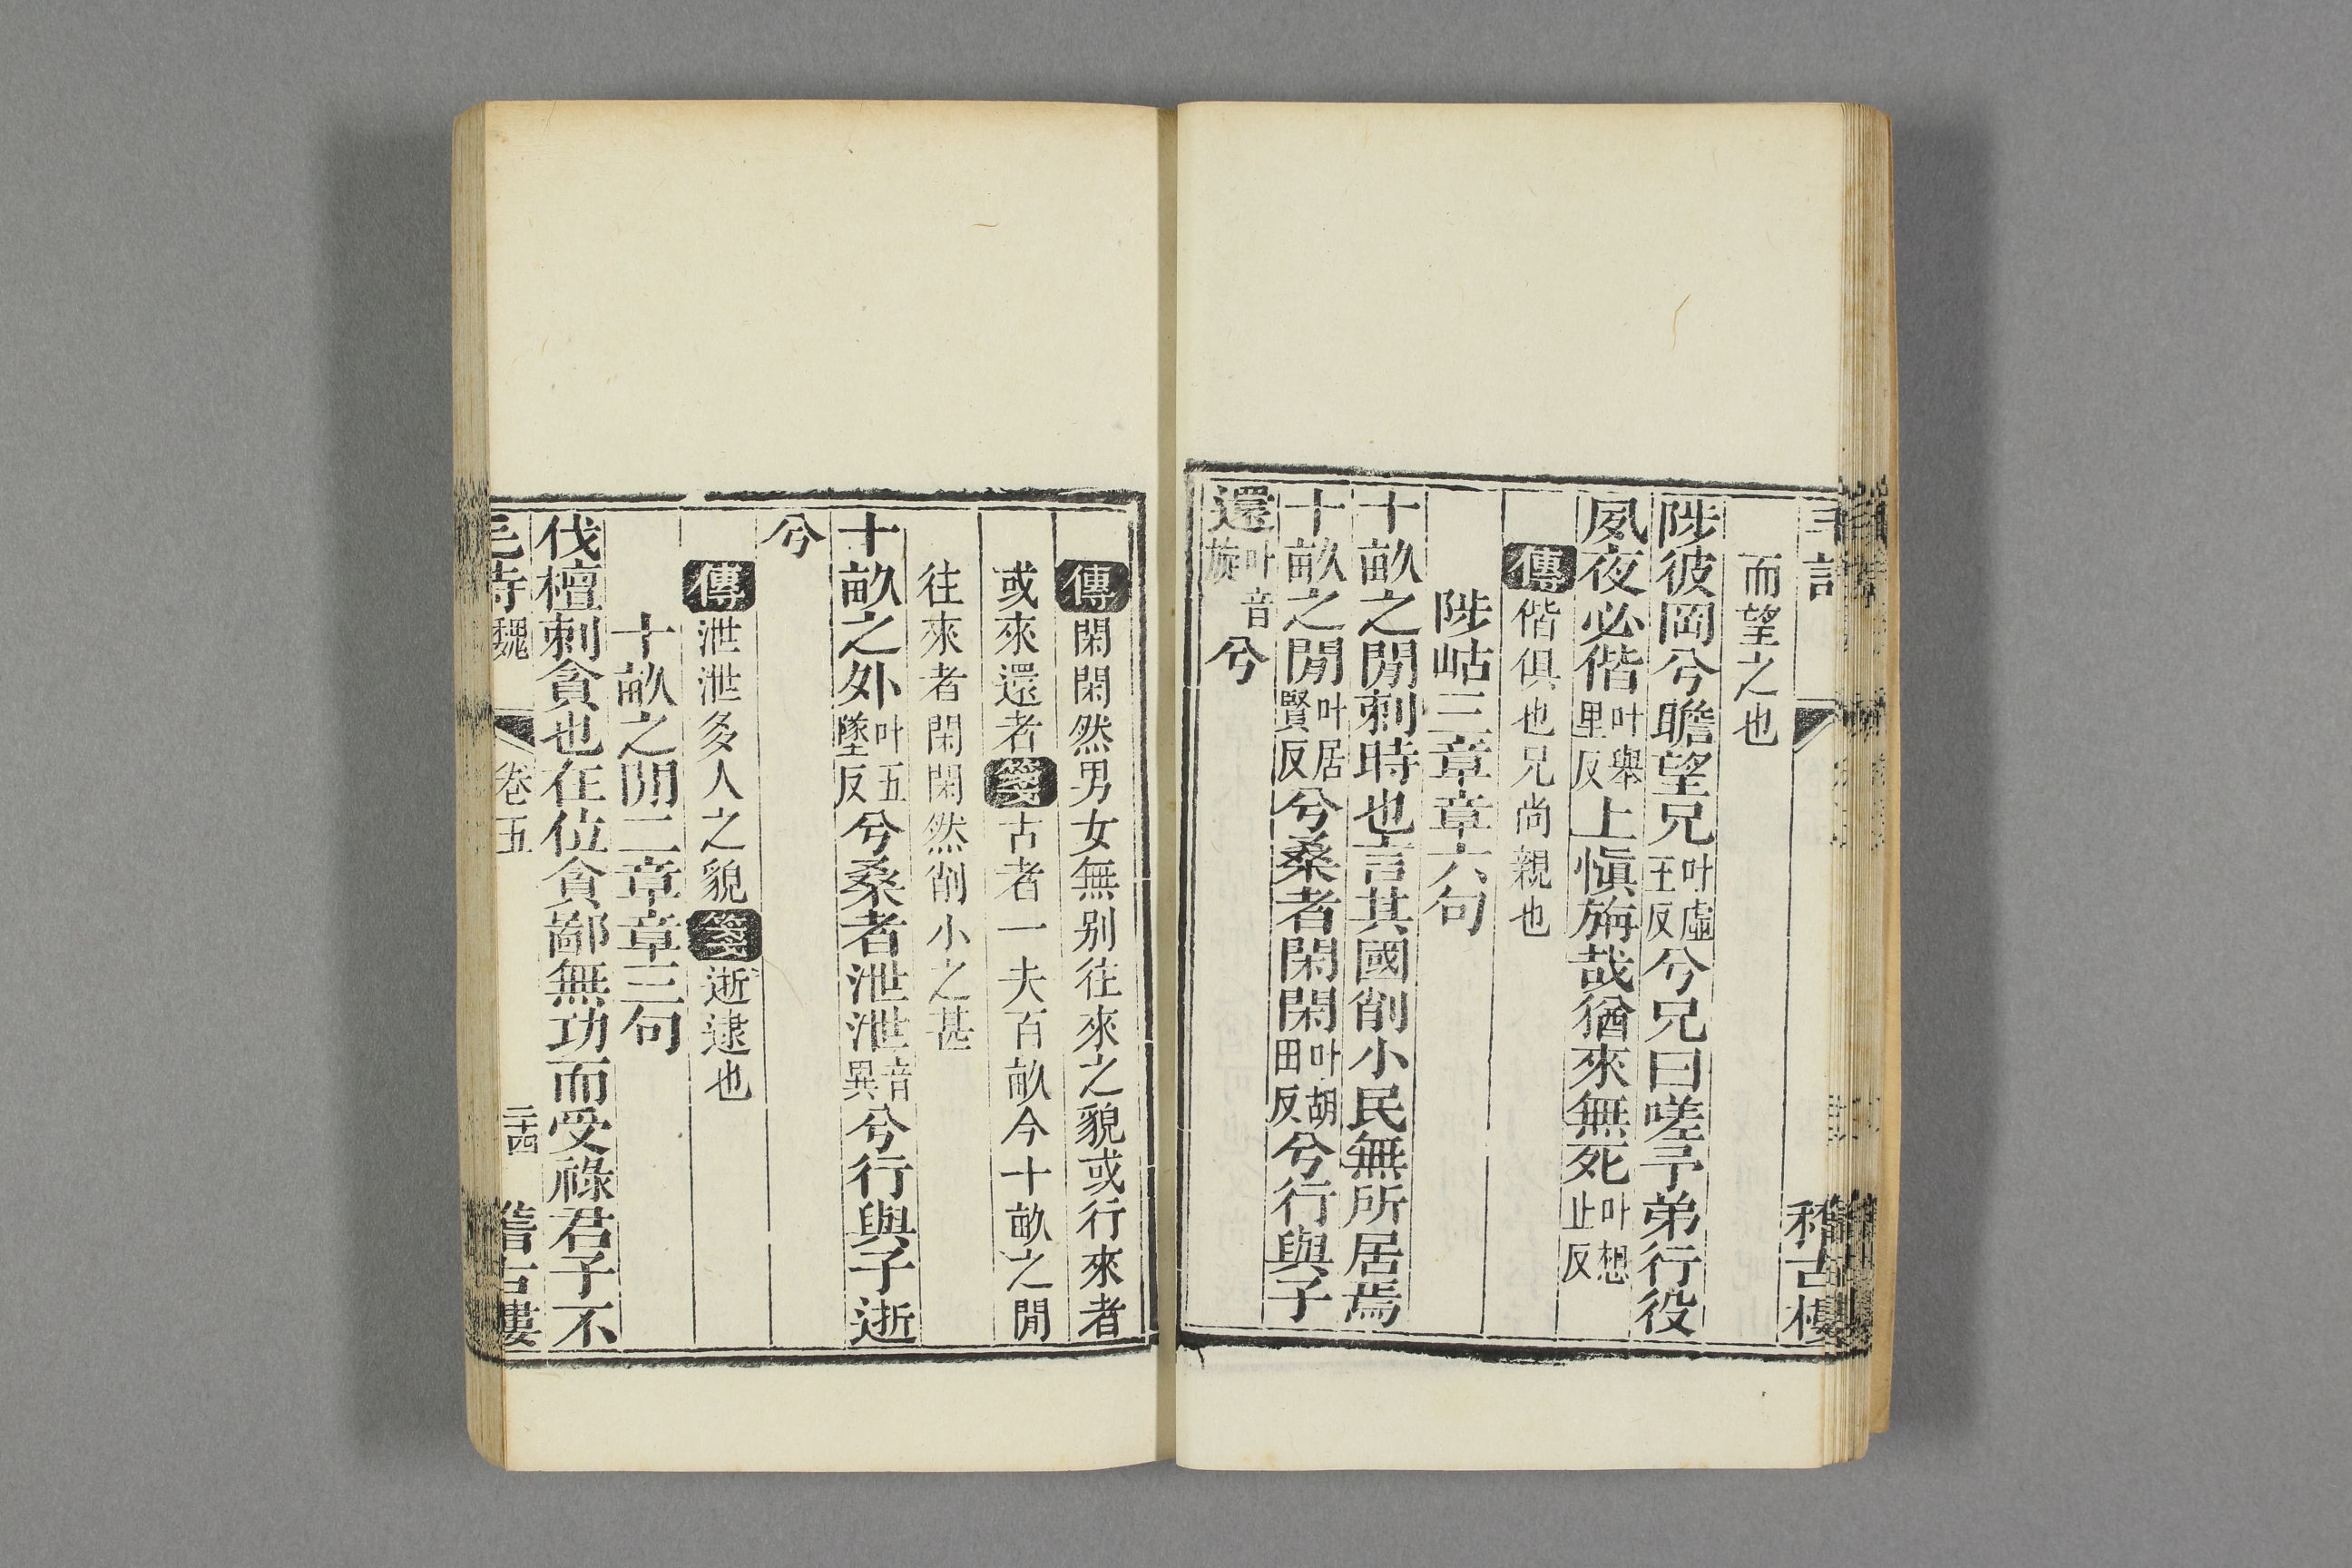 稽古樓
而望之也
陟彼岡兮瞻望兄叶虛王反兮兄曰嗟予弟行役
夙夜必偕叶舉里反上愼旃哉猶來無死叶想止反
傳偕俱也兄尚親也
陟岵三章章六句
十畝之閒刺時也言其國削小民無所居焉
十畝之閒叶居賢反兮桑者閑閑叶胡田反兮行與子
還叶音旋兮
傳閑閑然男女無别往來之貌或行來者
或來還者箋古者一夫百畝今十畝之閒
往來者閑閑然削小之甚
十畝之外叶五墜反兮桑者泄泄音異兮行與子逝
兮
傳泄泄多人之貌箋逝逮也
十畝之閒二章章三句
伐檀刺貪也在位貪鄙無功而受祿君子不
毛詩魏 卷五 二十四 稽古樓